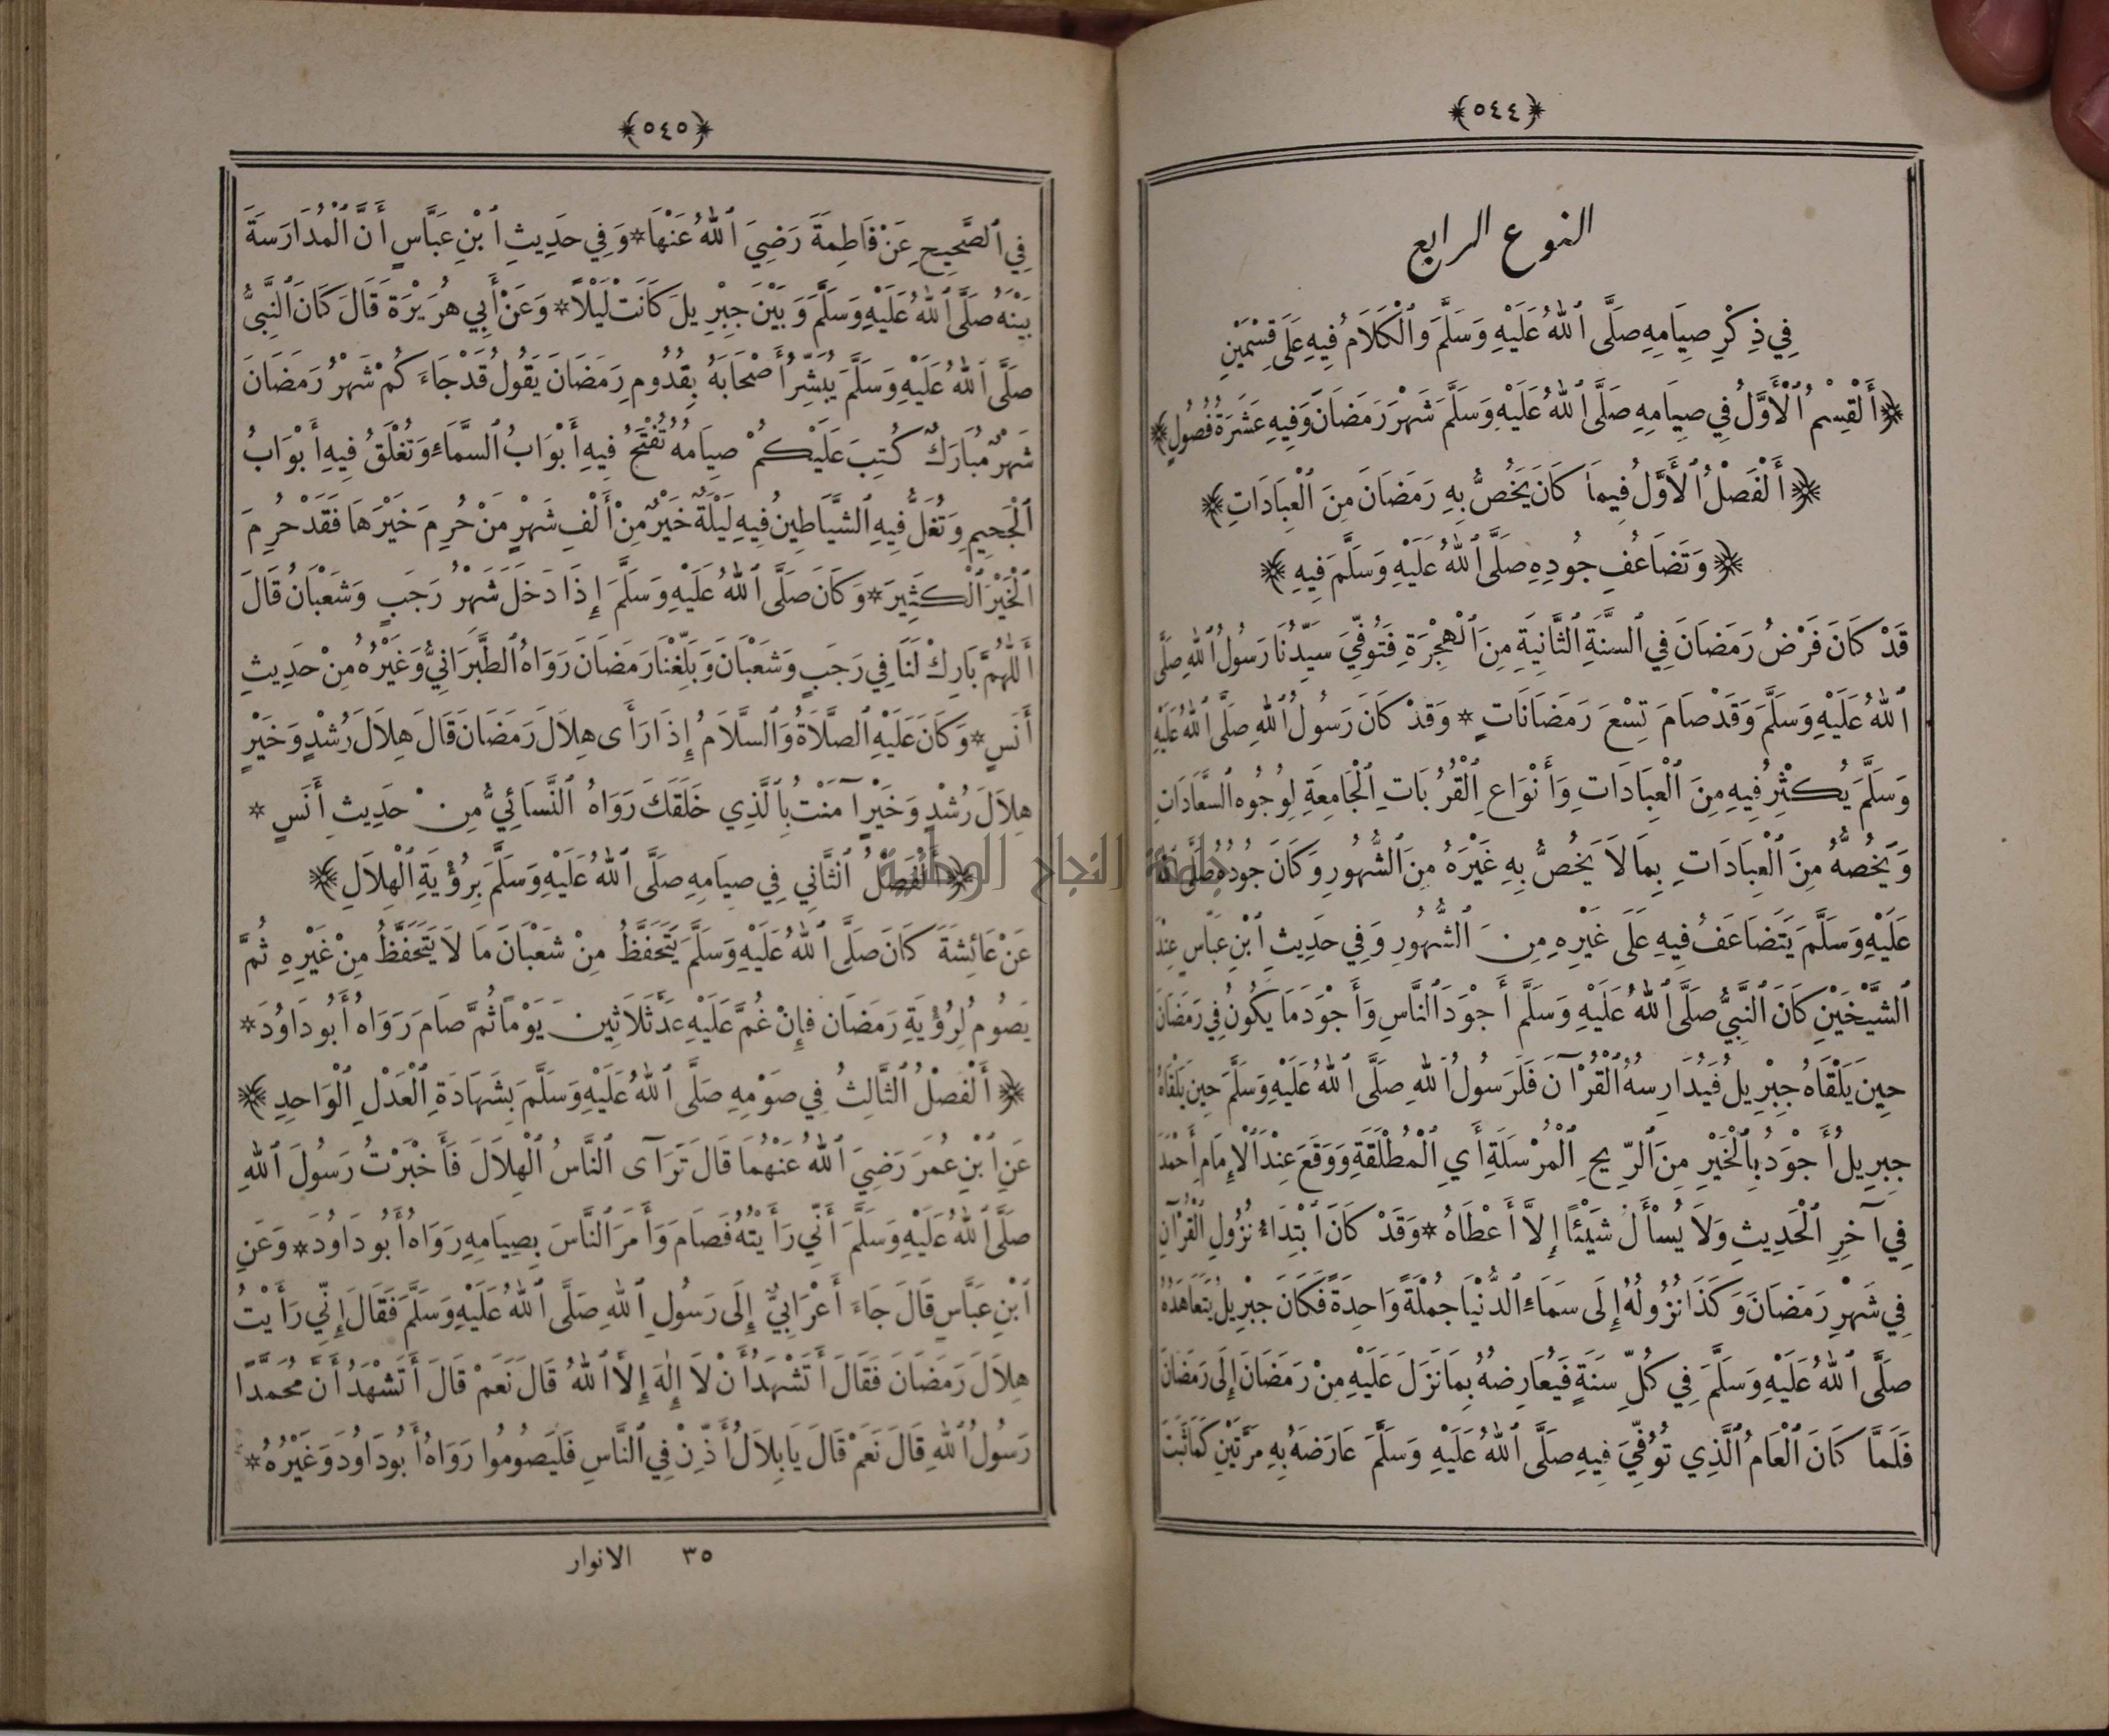 ﴿٥٤٤﴾
النوع الرابع
فِي ذِكْرِ صِيَامِهِ صَلَّى ٱللهُ عَلَيْهِ وَسَلَّمَ وَٱلْكَلَامُ فِيهِ عَلَى قِسْمَيْنِ
﴿أَلْقِسْمُ ٱلْأَوَّلُ فِي صِيَامِهِ صَلَّى ٱللهُ عَلَيْهِ وَسَلَّمَ شَهْرَ رَمَضَانَ وَفِيهِ عَشَرَةُ فُصُولٍ﴾
﴿أَلْفَصْلُ ٱلْأَوَّلُ فِيمَا كَانَ يَخُصُّ بِهِ رَمَضَانَ مِنَ ٱلْعِبَادَاتِ﴾
﴿وَتَضَاعُفِ جُودِهِ صَلَّى ٱللهُ عَلَيْهِ وَسَلَّمَ فِيهِ﴾
قَدْ كَانَ فَرْضُ رَمَضَانَ فِي ٱلسَّنَةِ ٱلثَّانِيَةِ مِنَ ٱلْهِجْرَةِ فَتُوُفِّيَ سَيِّدُنَا رَسُولُ ٱللهِ صَلَّى
ٱللهُ عَلَيْهِ وَسَلَّمَ وَقَدْ صَامَ تِسْعَ رَمَضَانَاتٍ * وَقَدْ كَانَ رَسُولُ ٱللهِ صَلَّى ٱللهُ عَلَيْهِ
وَسَلَّمَ يُكْثِرُ فِيهِ مِنَ ٱلْعِبَادَاتِ وَأَنْوَاعِ ٱلْقُرُبَاتِ ٱلْجَامِعَةِ لِوُجُوهِ ٱلسَّعَادَاتِ
وَيَخُصُّهُ مِنَ ٱلْعِبَادَاتِ بِمَا لَا يَخُصُّ بِهِ غَيْرَهُ مِنَ ٱلشُّهُورِ وَكَانَ جُودُهُ صَلَّى ٱللهُ
عَلَيْهِ وَسَلَّمَ يَتَضَاعَفُ فِيهِ عَلَى غَيْرِهِ مِنَ ٱلشُّهُورِ وَفِي حَدِيثِ ٱبْنِ عَبَّاسٍ عِنْدَ
ٱلشَّيْخَيْنِ كَانَ ٱلنَّبِيُّ صَلَّى ٱللهُ عَلَيْهِ وَسَلَّمَ أَجْوَدَ ٱلنَّاسِ وَأَجْوَدَ مَا يَكُونُ فِي رَمَضَانَ
حِينَ يَلْقَاهُ جِبْرِيلُ فَيُدَارِسُهُ ٱلْقُرْآنَ فَلَرَسُولُ ٱللهِ صَلَّى ٱللهُ عَلَيْهِ وَسَلَّمَ حِينَ يَلْقَاهُ
جِبْرِيلُ أَجْوَدُ بِٱلْخَيْرِ مِنَ ٱلرِّيحِ ٱلْمُرْسَلَةِ أَيِ ٱلْمُطْلَقَةِ وَوَقَعَ عِنْدَ ٱلْإِمَامِ أَحْمَدَ
فِي آخِرِ ٱلْحَدِيثِ وَلَا يُسْأَلُ شَيْئًا إِلَّا أَعْطَاهُ * وَقَدْ كَانَ ٱبْتِدَاءُ نُزُولِ ٱلْقُرْآنِ
فِي شَهْرِ رَمَضَانَ وَكَذَا نُزُولُهُ إِلَى سَمَاءِ ٱلدُّنْيَا جُمْلَةً وَاحِدَةً فَكَانَ جِبْرِيلُ يَتَعَاهَدُهُ
صَلَّى ٱللهُ عَلَيْهِ وَسَلَّمَ فِي كُلِّ سَنَةٍ فَيُعَارِضُهُ بِمَا نَزَلَ عَلَيْهِ مِنْ رَمَضَانَ إِلَى رَمَضَانَ
فَلَمَّا كَانَ ٱلْعَامُ ٱلَّذِي تُوُفِّيَ فِيهِ صَلَّى ٱللهُ عَلَيْهِ وَسَلَّمَ عَارَضَهُ بِهِ مَرَّتَيْنِ كَمَا ثَبَتَ
﴿٥٤٥﴾
فِي ٱلصَّحِيحِ عَنْ فَاطِمَةَ رَضِيَ ٱللهُ عَنْهَا * وَفِي حَدِيثِ ٱبْنِ عَبَّاسٍ أَنَّ ٱلْمُدَارَسَةَ
بَيْنَهُ صَلَّى ٱللهُ عَلَيْهِ وَسَلَّمَ وَبَيْنَ جِبْرِيلَ كَانَتْ لَيْلًا * وَعَنْ أَبِي هُرَيْرَةَ قَالَ كَانَ ٱلنَّبِيُّ
صَلَّى ٱللهُ عَلَيْهِ وَسَلَّمَ يُبَشِّرُ أَصْحَابَهُ بِقُدُومِ رَمَضَانَ يَقُولُ قَدْ جَاءَكُمْ شَهْرُ رَمَضَانَ
شَهْرٌ مُبَارَكٌ كُتِبَ عَلَيْكُمْ صِيَامُهُ تُفْتَحُ فِيهِ أَبْوَابُ ٱلسَّمَاءِ وَتُغْلَقُ فِيهِ أَبْوَابُ
ٱلْجَحِيمِ وَتُغَلُّ فِيهِ ٱلشَّيَاطِينُ فِيهِ لَيْلَةٌ خَيْرٌ مِنْ أَلْفِ شَهْرٍ مَنْ حُرِمَ خَيْرَهَا فَقَدْ حُرِمَ
ٱلْخَيْرَ ٱلْكَثِيرَ * وَكَانَ صَلَّى ٱللهُ عَلَيْهِ وَسَلَّمَ إِذَا دَخَلَ شَهْرُ رَجَبٍ وَشَعْبَانُ قَالَ
أَللَّهُمَّ بَارِكْ لَنَا فِي رَجَبٍ وَشَعْبَانَ وَبَلِّغْنَا رَمَضَانَ رَوَاهُ ٱلطَّبَرَانِيُّ وَغَيْرُهُ مِنْ حَدِيثِ
أَنَسٍ * وَكَانَ عَلَيْهِ ٱلصَّلَاةُ وَٱلسَّلَامُ إِذَا رَأَى هِلَالَ رَمَضَانَ قَالَ هِلَالَ رُشْدٍ وَخَيْرٍ
هِلَالَ رُشْدٍ وَخَيْرٍ آمَنْتُ بِٱلَّذِي خَلَقَكَ رَوَاهُ ٱلنَّسَائِيُّ مِنْ حَدِيثِ أَنَسٍ *
﴿أَلْفَصْلُ ٱلثَّانِي فِي صِيَامِهِ صَلَّى ٱللهُ عَلَيْهِ وَسَلَّمَ بِرُؤْيَةِ ٱلْهِلَالِ﴾
عَنْ عَائِشَةَ كَانَ صَلَّى ٱللهُ عَلَيْهِ وَسَلَّمَ يَتَحَفَّظُ مِنْ شَعْبَانَ مَا لَا يَتَحَفَّظُ مِنْ غَيْرِهِ ثُمَّ
يَصُومُ لِرُؤْيَةِ رَمَضَانَ فَإِنْ غُمَّ عَلَيْهِ عَدَّ ثَلَاثِينَ يَوْمًا ثُمَّ صَامَ رَوَاهُ أَبُو دَاوُدَ *
﴿أَلْفَصْلُ ٱلثَّالِثُ فِي صَوْمِهِ صَلَّى ٱللهُ عَلَيْهِ وَسَلَّمَ بِشَهَادَةِ ٱلْعَدْلِ ٱلْوَاحِدِ﴾
عَنِ ٱبْنِ عُمَرَ رَضِيَ ٱللهُ عَنْهُمَا قَالَ تَرَآى ٱلنَّاسُ ٱلْهِلَالَ فَأَخْبَرْتُ رَسُولَ ٱللهِ
صَلَّى ٱللهُ عَلَيْهِ وَسَلَّمَ أَنِّي رَأَيْتُهُ فَصَامَ وَأَمَرَ ٱلنَّاسَ بِصِيَامِهِ رَوَاهُ أَبُو دَاوُدَ * وَعَنِ
ٱبْنِ عَبَّاسٍ قَالَ جَاءَ أَعْرَابِيٌّ إِلَى رَسُولِ ٱللهِ صَلَّى ٱللهُ عَلَيْهِ وَسَلَّمَ فَقَالَ إِنِّي رَأَيْتُ
هِلَالَ رَمَضَانَ فَقَالَ أَتَشْهَدُ أَنْ لَا إِلٰهَ إِلَّا ٱللهُ قَالَ نَعَمْ قَالَ أَتَشْهَدُ أَنَّ مُحَمَّدًا
رَسُولُ ٱللهِ قَالَ نَعَمْ قَالَ يَا بِلَالُ أَذِّنْ فِي ٱلنَّاسِ فَلْيَصُومُوا رَوَاهُ أَبُو دَاوُدَ وَغَيْرُهُ *
٣٥ الانوار
جامعة النجاح الوطنية